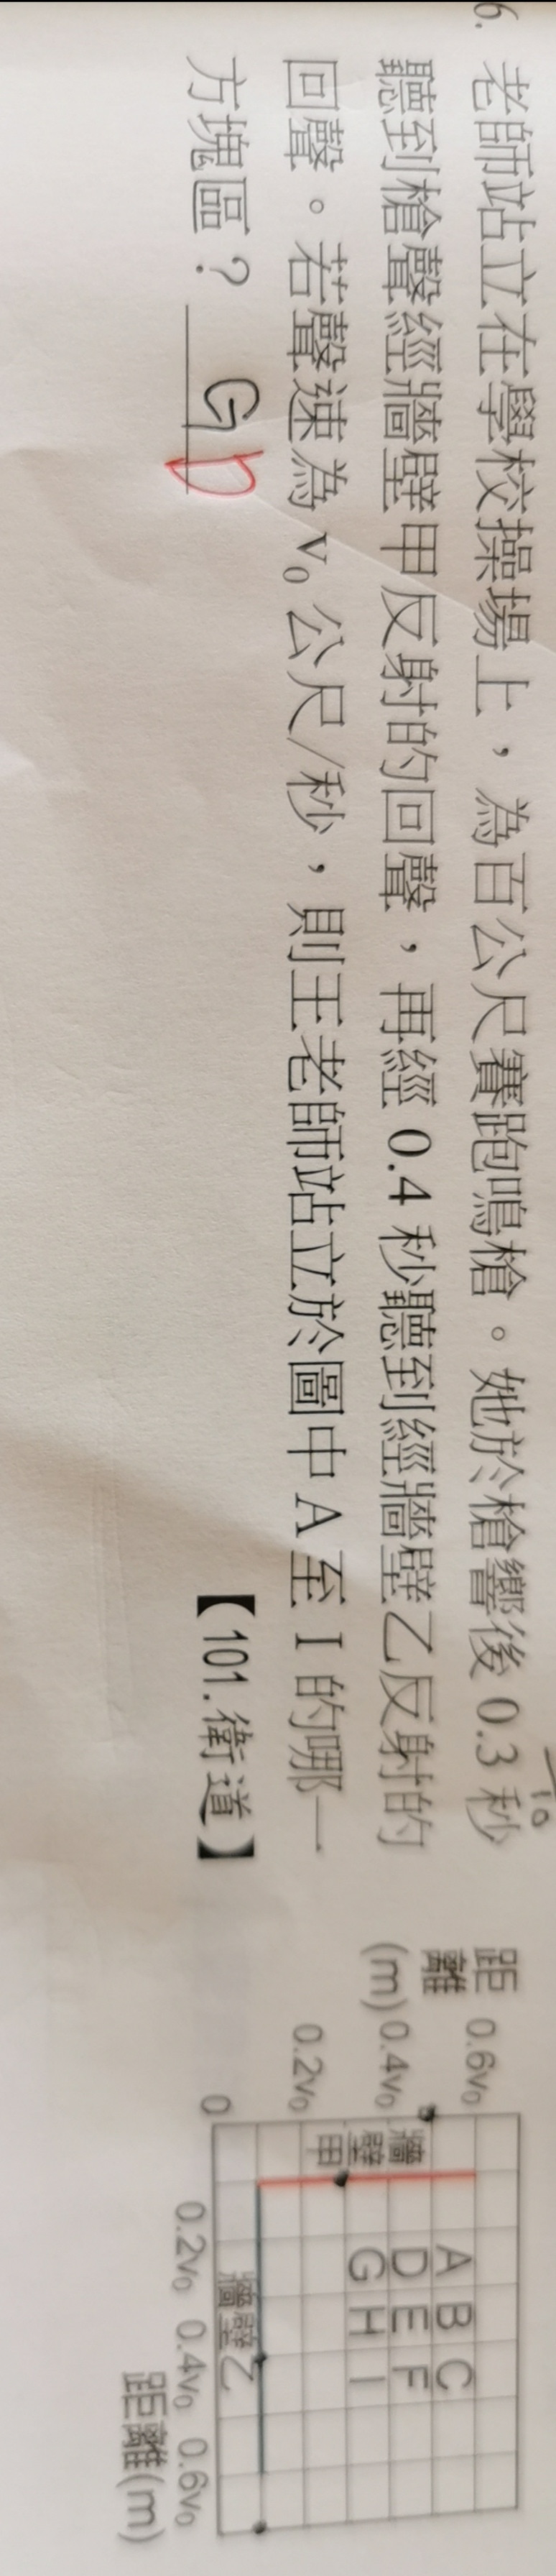 6. 老師站立在學校操場上，為百公尺賽跑鳴槍。她於槍響後 0.3 秒
聽到槍聲經牆壁甲反射的回聲，再經 0.4 秒聽到經牆壁乙反射的
回聲。若聲速為 v₀ 公尺/秒，則王老師站立於圖中 A 至 I 的哪一
方塊區？ G D
【101.衛道】
距離
(m)
0.6v₀
0.4v₀
0.2v₀
0
牆壁甲
A B C
D E F
G H I
牆壁乙
0.2v₀ 0.4v₀ 0.6v₀
距離(m)